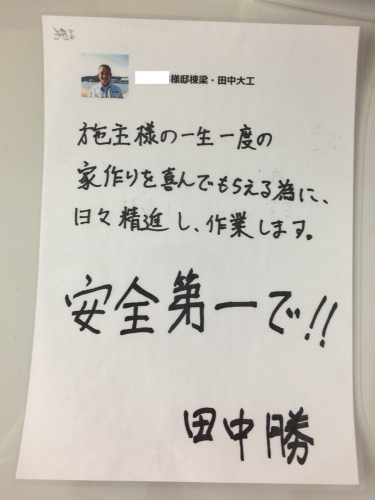 様邸棟梁・田中大工
施主様の一生一度の
家作りを喜んでもらえる為に、
日々精進し、作業します。
安全第一で!!
田中勝